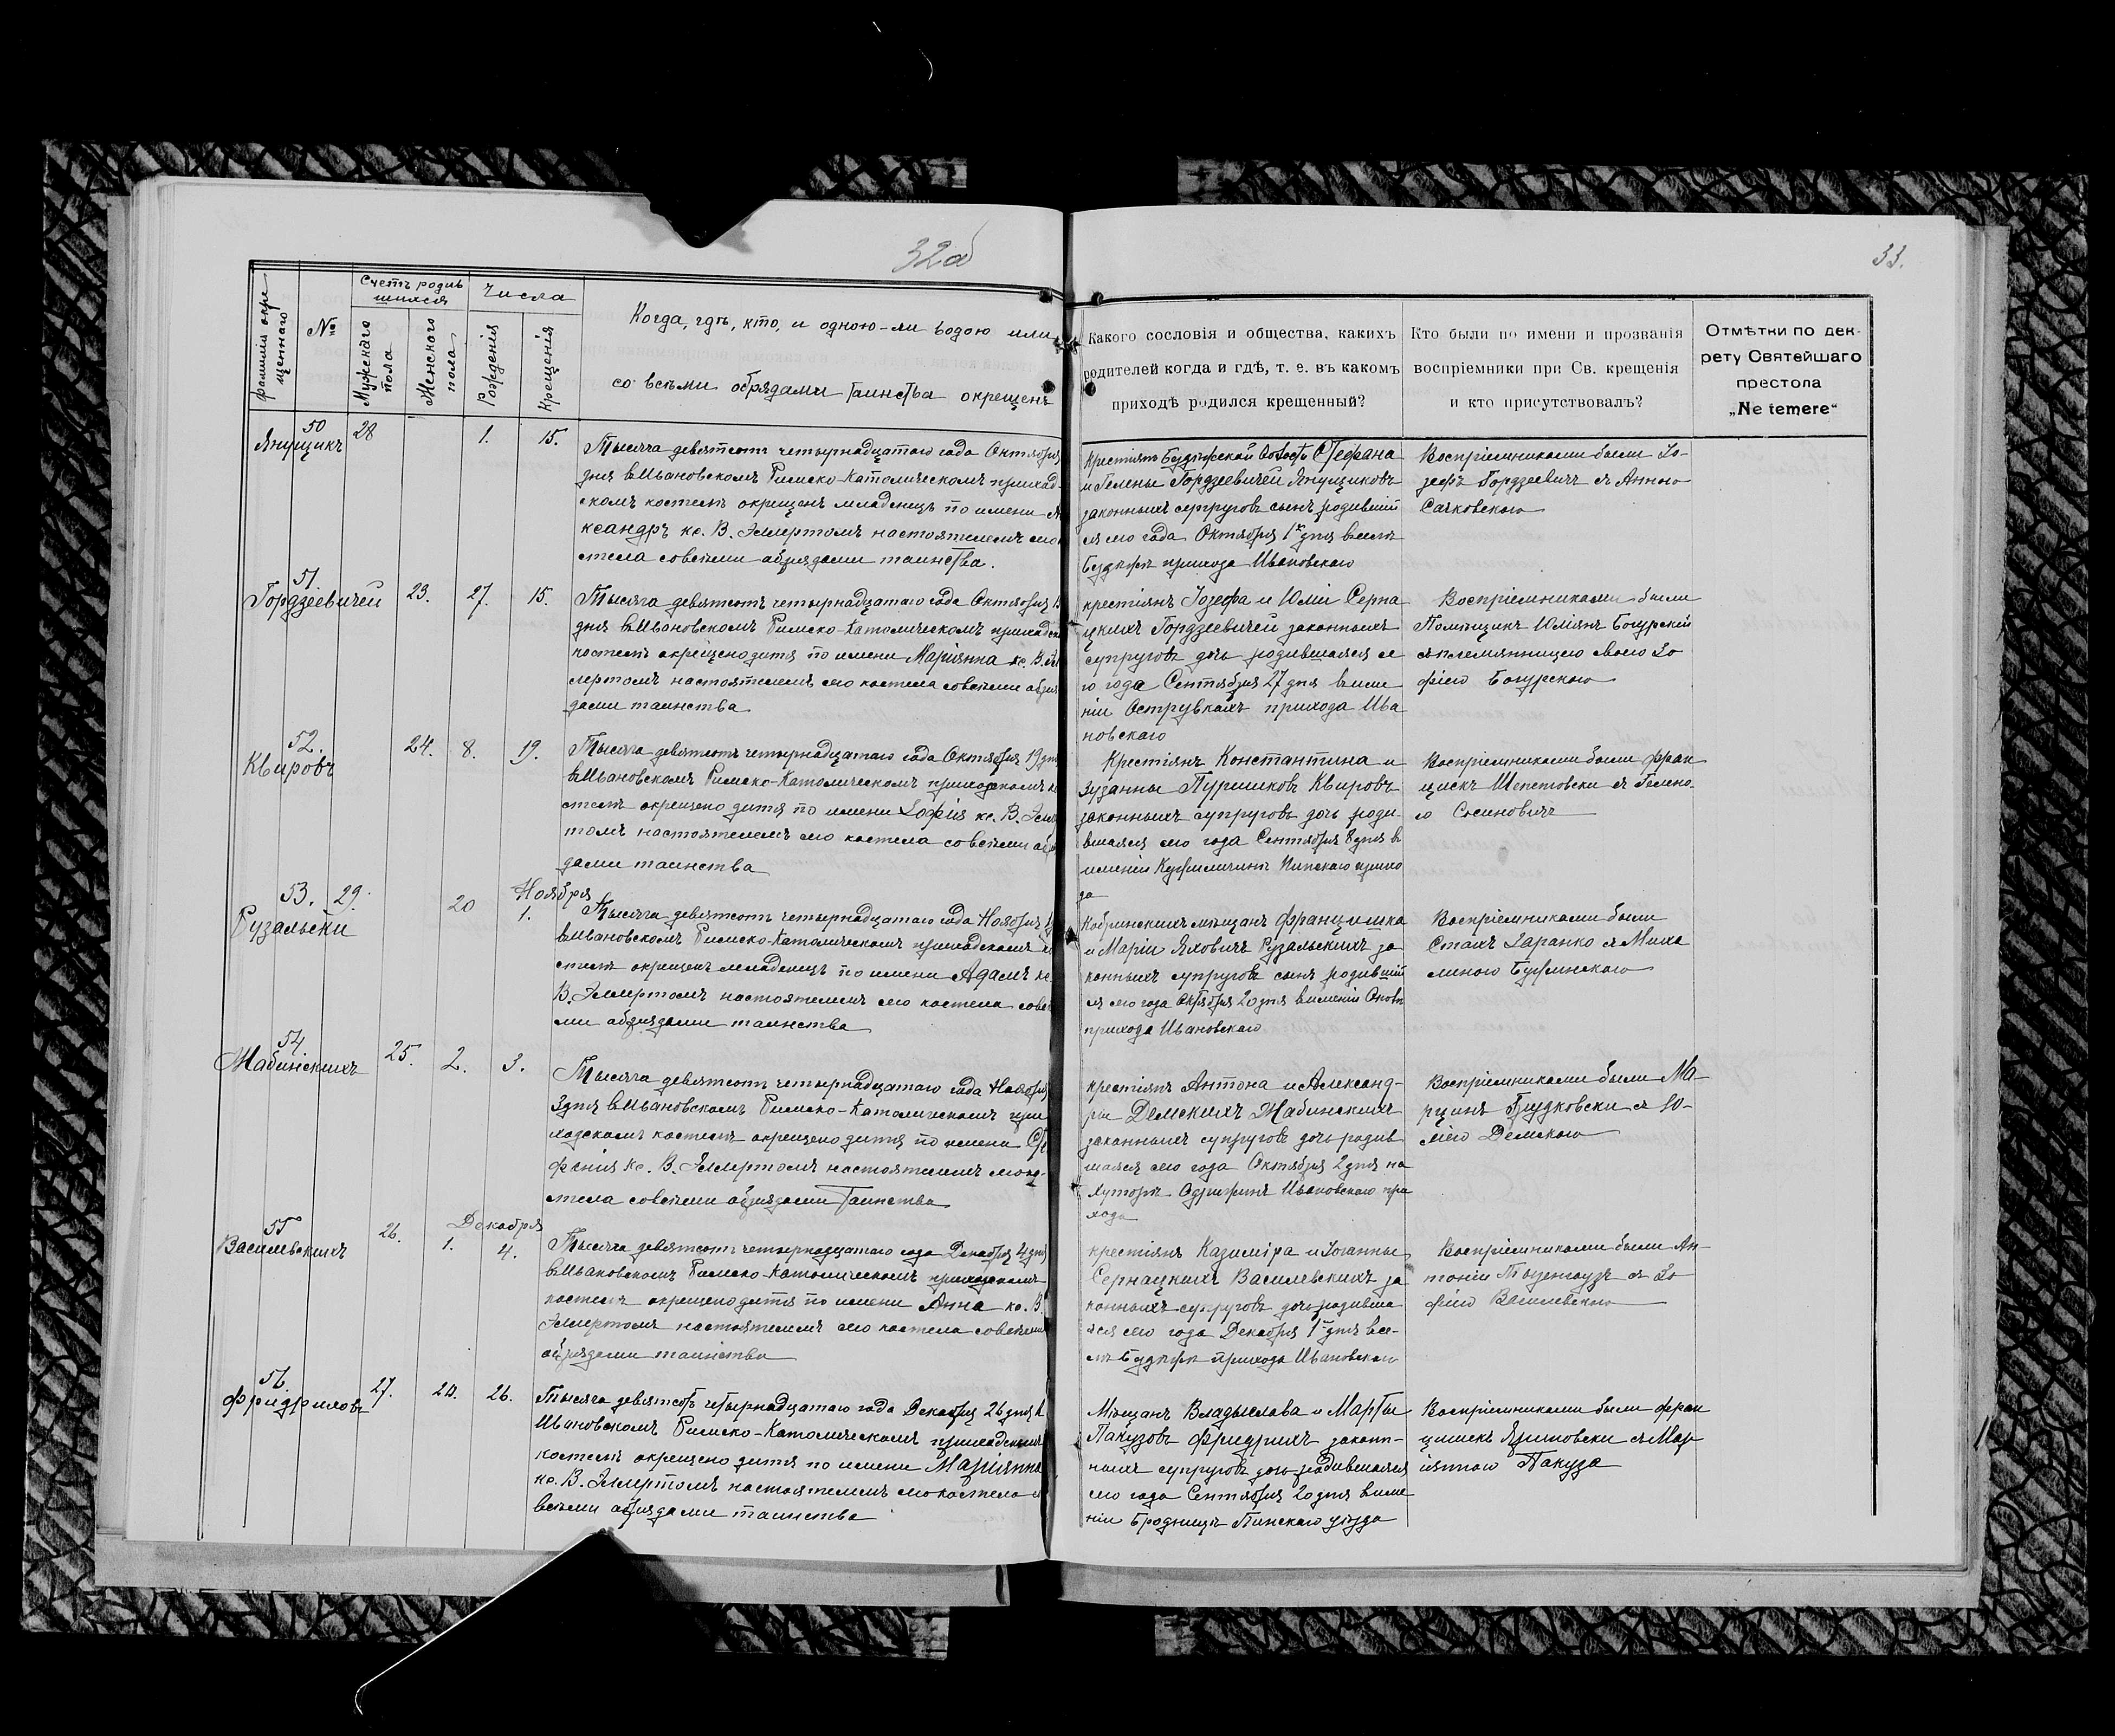 32об
33.
фамилія окре-
щеннаго
№№
Счетъ родив
шихся
Мужскаго
пола
Женскаго
пола
Числа
Рожденія
Крещенія
Когда, гдѣ, кто, и одною-ли водою или
со всѣми обрядами таинства окрещенъ
Какого сословія и общества, какихъ
родителей когда и гдѣ, т. е. въ какомъ
приходѣ родился крещенный?
Кто были по имени и прозванія
воспріемники при Св. крещенія
и кто присутствовалъ?
Отмѣтки по дек-
рету Святейшаго
престола
„Ne temere“
50
Янущикъ
28
1.
15.
Тысяча девятсотъ четырнадцатаго года Октября
дня въ Ивановскомъ Римско-Католическомъ приход-
скомъ костелѣ окрещенъ младенецъ по имени
ксандръ кс. В. Эллертомъ настоятелемъ сего
стела со всѣми обрядами таинства.
Крестіянъ Стефана
и Гелены Гордзеевичей Янущиковъ
законныхъ супруговъ сынъ родивший
ся сего года Октября 1го дня въ селѣ
прихода Ивановскаго
Воспріемниками были Іо-
зефъ Гордзеевичъ и Анною
Сачковскою
51.
Гордзеевичей
23.
27.
15.
Тысяча девятсотъ четырнадцатаго года Октября 15
дня въ Ивановскомъ Римско-Католическомъ приходск
костелѣ окрещено дитя по имени Маріянна кс. В. Эл
лертомъ настоятелемъ сего костела со всѣми обря
дами таинства
крестіянъ Іозефа и Юліи Серна
цкихъ Гордзеевичей законныхъ
супруговъ дочь родившаяся се
го года Сентября 27 дня въ име
ніи Острувкахъ прихода Ива
новскаго
Воспріемниками были
Помѣщикъ Юліянъ Богурскій
съ племянницею своею Зо
фіею Богурскою
52.
Квировъ
24.
8.
19.
Тысяча девятсотъ четырнадцатаго года Октября 19 дня
въ Ивановскомъ Римско-Католическомъ приходскомъ ко
стелѣ окрещено дитя по имени Зофія кс. В. Элле
томъ настоятелемъ сего костела со всѣми обря
дами таинства
Крестіянъ Константина и
Зузанны Квировъ
законныхъ супруговъ дочь роди-
вшаяся сего года Сентября 8 дня въ
имении Пинскаго прихо
да
Воспріемниками были Фран
цискъ Шепетовски и Гелено-
ю
53.
Рузальски
29.
20
Ноября
1.
Тысяча девятсотъ четырнадцатаго года Ноября 1
въ Ивановскомъ Римско-Католическомъ приходскомъ ко
стелѣ окрещенъ младенецъ по имени Адамъ кс.
В. Эллертомъ настоятелемъ сего костела совсѣ
ми обрядами таинства
Кобринскихъ мѣщанъ Францишка
и Маріи Яховичъ Рузальскихъ за
конныхъ супруговъ сынъ родивший
ся сего года Октября 20 дня въ имѣніи
прихода Ивановскаго
Воспріемниками были
Стахъ Заранко и Миха
линою
54
Жабинскихъ
25.
2.
3.
Тысяча девятсотъ четырнадцатаго года Ноября
3 дня въ Ивановскомъ Римско-Католическомъ при
ходскомъ костелѣ окрещено дитя по имени Сте
фанія кс. В. Эллертомъ настоятелемъ сего ко-
стела со всѣми обрядами Таинства
крестіянъ Антона и Александ-
ры Демскихъ Жабинскихъ
законныхъ супруговъ дочь родив
шаяся сего года Октября 2 дня на
хуторѣ Ивановскаго при
хода
Воспріемниками были Ма-
рцинъ и Ю-
ліею Демскою
55
Василевскихъ
26.
1.
Декабря
4.
Тысяча девятсотъ четырнадцатаго года Декабря 4 дня
въ Ивановскомъ Римско-Католическомъ приходскомъ
костелѣ окрещено дитя по имени Анна кс. В.
Эллертомъ настоятелемъ сего костела со всѣми
обрядами таинства
крестіянъ Казиміра и Іоганны
Сернацкихъ Василевскихъ за
конныхъ супруговъ дочь родивша
яся сего года Декабря 1го дня въ се-
лѣ прихода Ивановскаго
Воспріемниками были Ан-
тоніи и Зо
фіею Василевскою
56.
Фридриховъ
27.
20.
26.
Тысяча девятсотъ четырнадцатаго года Декабря 26 дня в
Ивановскомъ Римско-Католическомъ приходскомъ
костелѣ окрещено дитя по имени Маріянна
кс. В. Эллертомъ настоятелемъ сего костела со
всѣми обрядами таинства
Мѣщанъ Владыслава и Марты
Пакузовъ Фридрихъ закон-
ныхъ супруговъ дочь родившаяся
сего года Сентября 20 дня въ име
ніи Бродницѣ Пинскаго уѣзда
Воспріемниками были Фран
цишекъ и Мар
іянною Пакуза